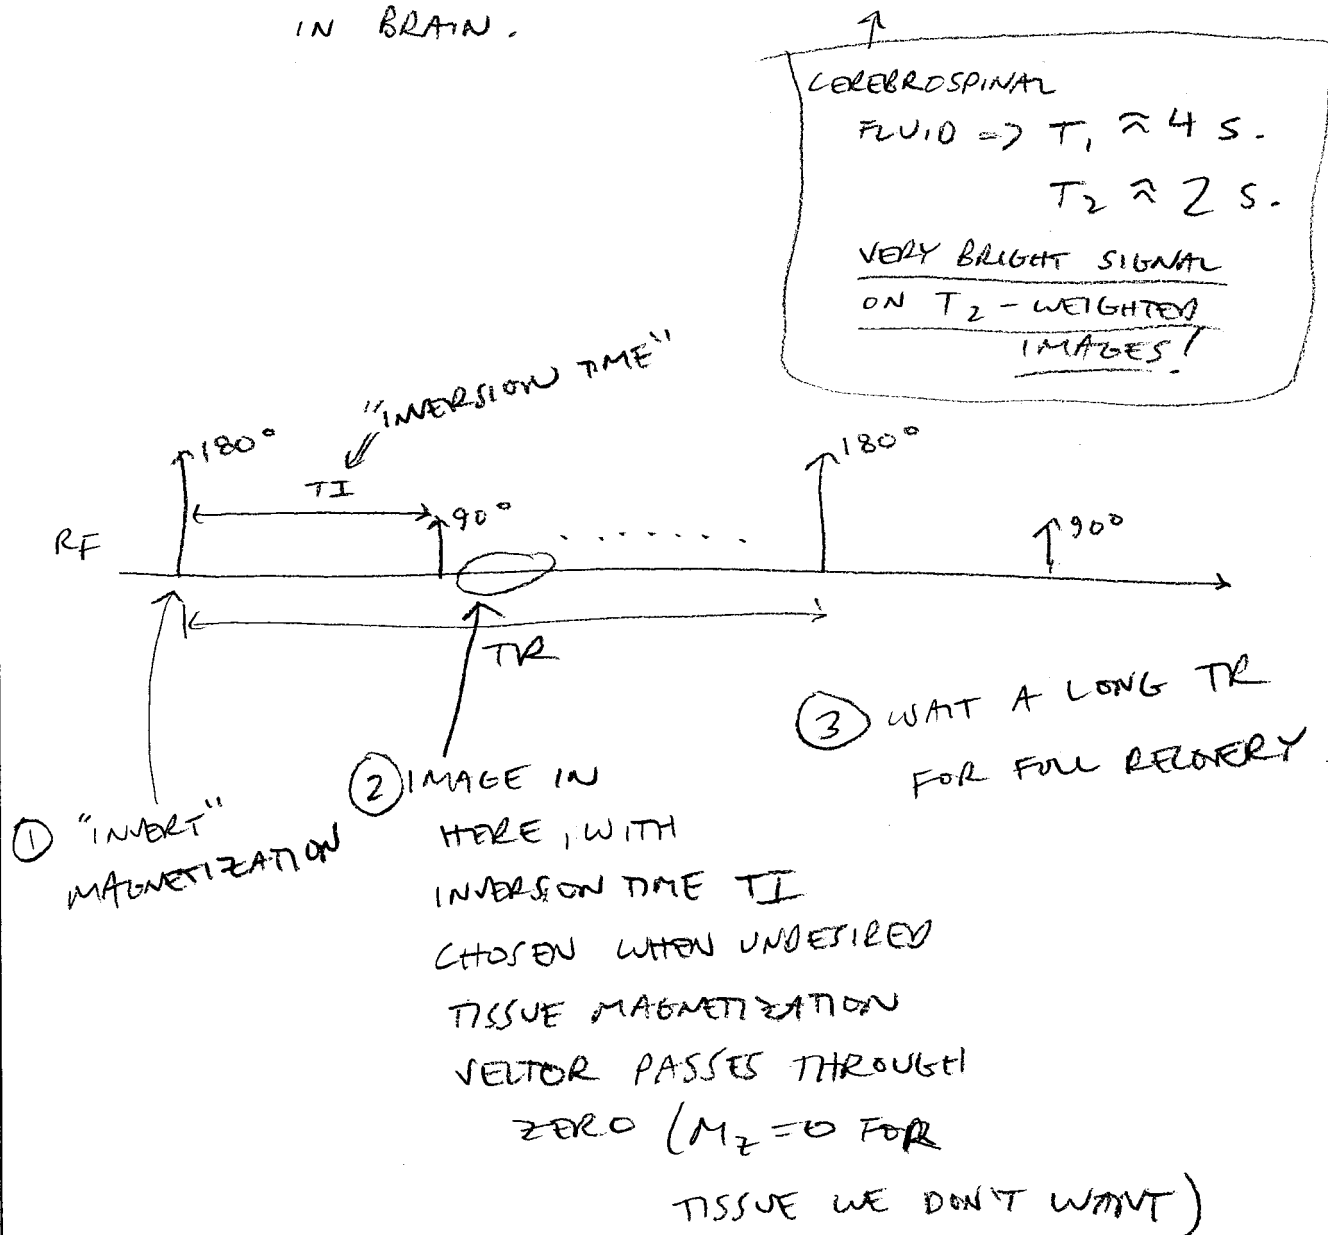 IN BRAIN.
CEREBROSPINAL
FLUID => T₁ ≈ 4 S.
T₂ ≈ 2 S.
VERY BRIGHT SIGNAL
ON T₂-WEIGHTED
IMAGES!
"INVERSION TIME"
180°
TI
90°
180°
90°
RF
TR
① "INVERT"
MAGNETIZATION
② IMAGE IN
HERE, WITH
INVERSION TIME TI
CHOSEN WHEN UNDESIRED
TISSUE MAGNETIZATION
VECTOR PASSES THROUGH
ZERO (M_z=0 FOR
TISSUE WE DON'T WANT)
③ WAIT A LONG TR
FOR FULL RECOVERY